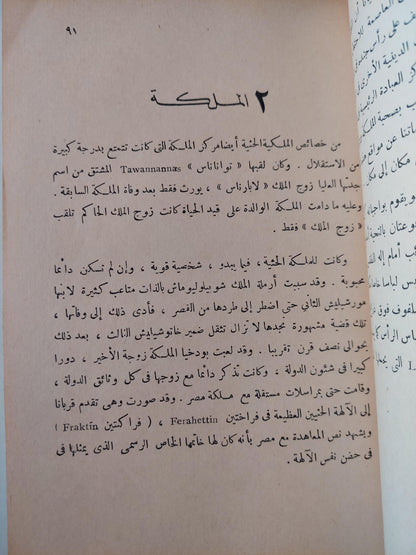 ٩١
٢ الملكة
من خصائص الملكية الحثية أيضا مركز الملكة التى كانت تتمتع بدرجة كبيرة
من الاستقلال . وكان لقبها « تواناناس » Tawannannas المشتق من اسم
جدتها العليا زوج الملك « لابارناس » ، يورث فقط بعد وفاة الملكة السابقة .
وعليه ما دامت الملكة الوالدة على قيد الحياة كانت زوج الملك الحاكم تلقب
« زوج الملك » فقط .
وكانت للملكة الحثية ، فيما يبدو ، شخصية قوية ، وإن لم تسكن دائما
محبوبة . وقد سببت أرملة الملك شوبيلوليوماش بالذات متاعب كثيرة لابنها
مورشيلبش الثانى حتى اضطر إلى طردها من القصر ، فأدى ذلك إلى وفاتها ،
تلك قضية مشهورة نجدها لا تزال تثقل ضمير خاتوشيليش الثالث ، بعد ذلك
بحوالى نصف قرن تقريبا . وقد لعبت بودخيبا الملكة زوجة الأخير ، دورا
كبيرا فى شئون الدولة ، وكانت تذكر دائما مع زوجها فى كل وثائق الدولة ،
وقامت حتى بمراسلات مستقلة مع ملكة مصر . وقد صورت وهى تقدم قربانا
إلى الآلهة الحثيين العظيمة فى فراختين Ferahettin ، ( فراكتين Fraktin )
ويشهد نص المعاهدة مع مصر بأنه كان لها خاتمها الخاص الرسمى الذى يمثلها فى
فى حضن نفس الآلهة .